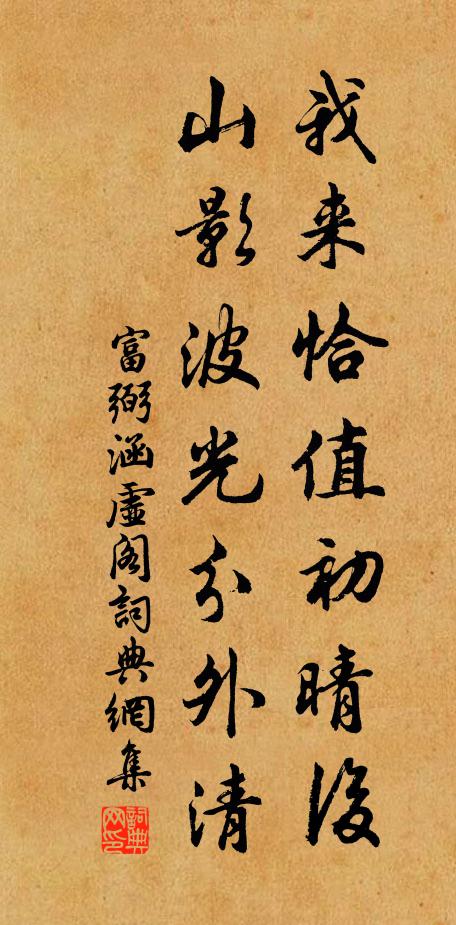 我来恰值初晴後
山影波光分外清
富弼涵虛阁詞典網集
詞典网印